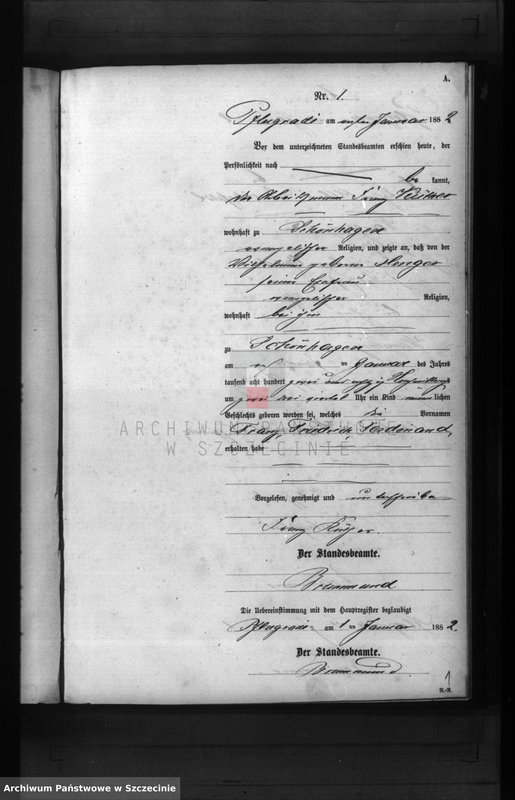 A.
Nr. 1.
Pflugrade am ersten Januar 1882
Vor dem unterzeichneten Standesbeamten erschien heute, der
Persönlichkeit nach
be kannt,
der Arbeitsmann Franz
wohnhaft zu Schönhagen
evangelischer Religion, und zeigte an, daß von der
geborene
seiner Ehefrau
evangelischer Religion,
wohnhaft bei ihm
zu Schönhagen
am ten Januar des Jahres
tausend acht hundert zwei und achtzig
um zwei drei viertel Uhr ein Kind männlichen
Geschlechts geboren worden sei, welches die Vornamen
Franz Friedrich Ferdinand,
erhalten habe
ARCHIWUM PAŃSTWOWE
W SZCZECINIE
Vorgelesen, genehmigt und unterschrieben
Franz
Der Standesbeamte.
Die Uebereinstimmung mit dem Hauptregister beglaubigt
Pflugrade am 1 ten Januar 1882.
Der Standesbeamte.
1
Archiwum Państwowe w Szczecinie